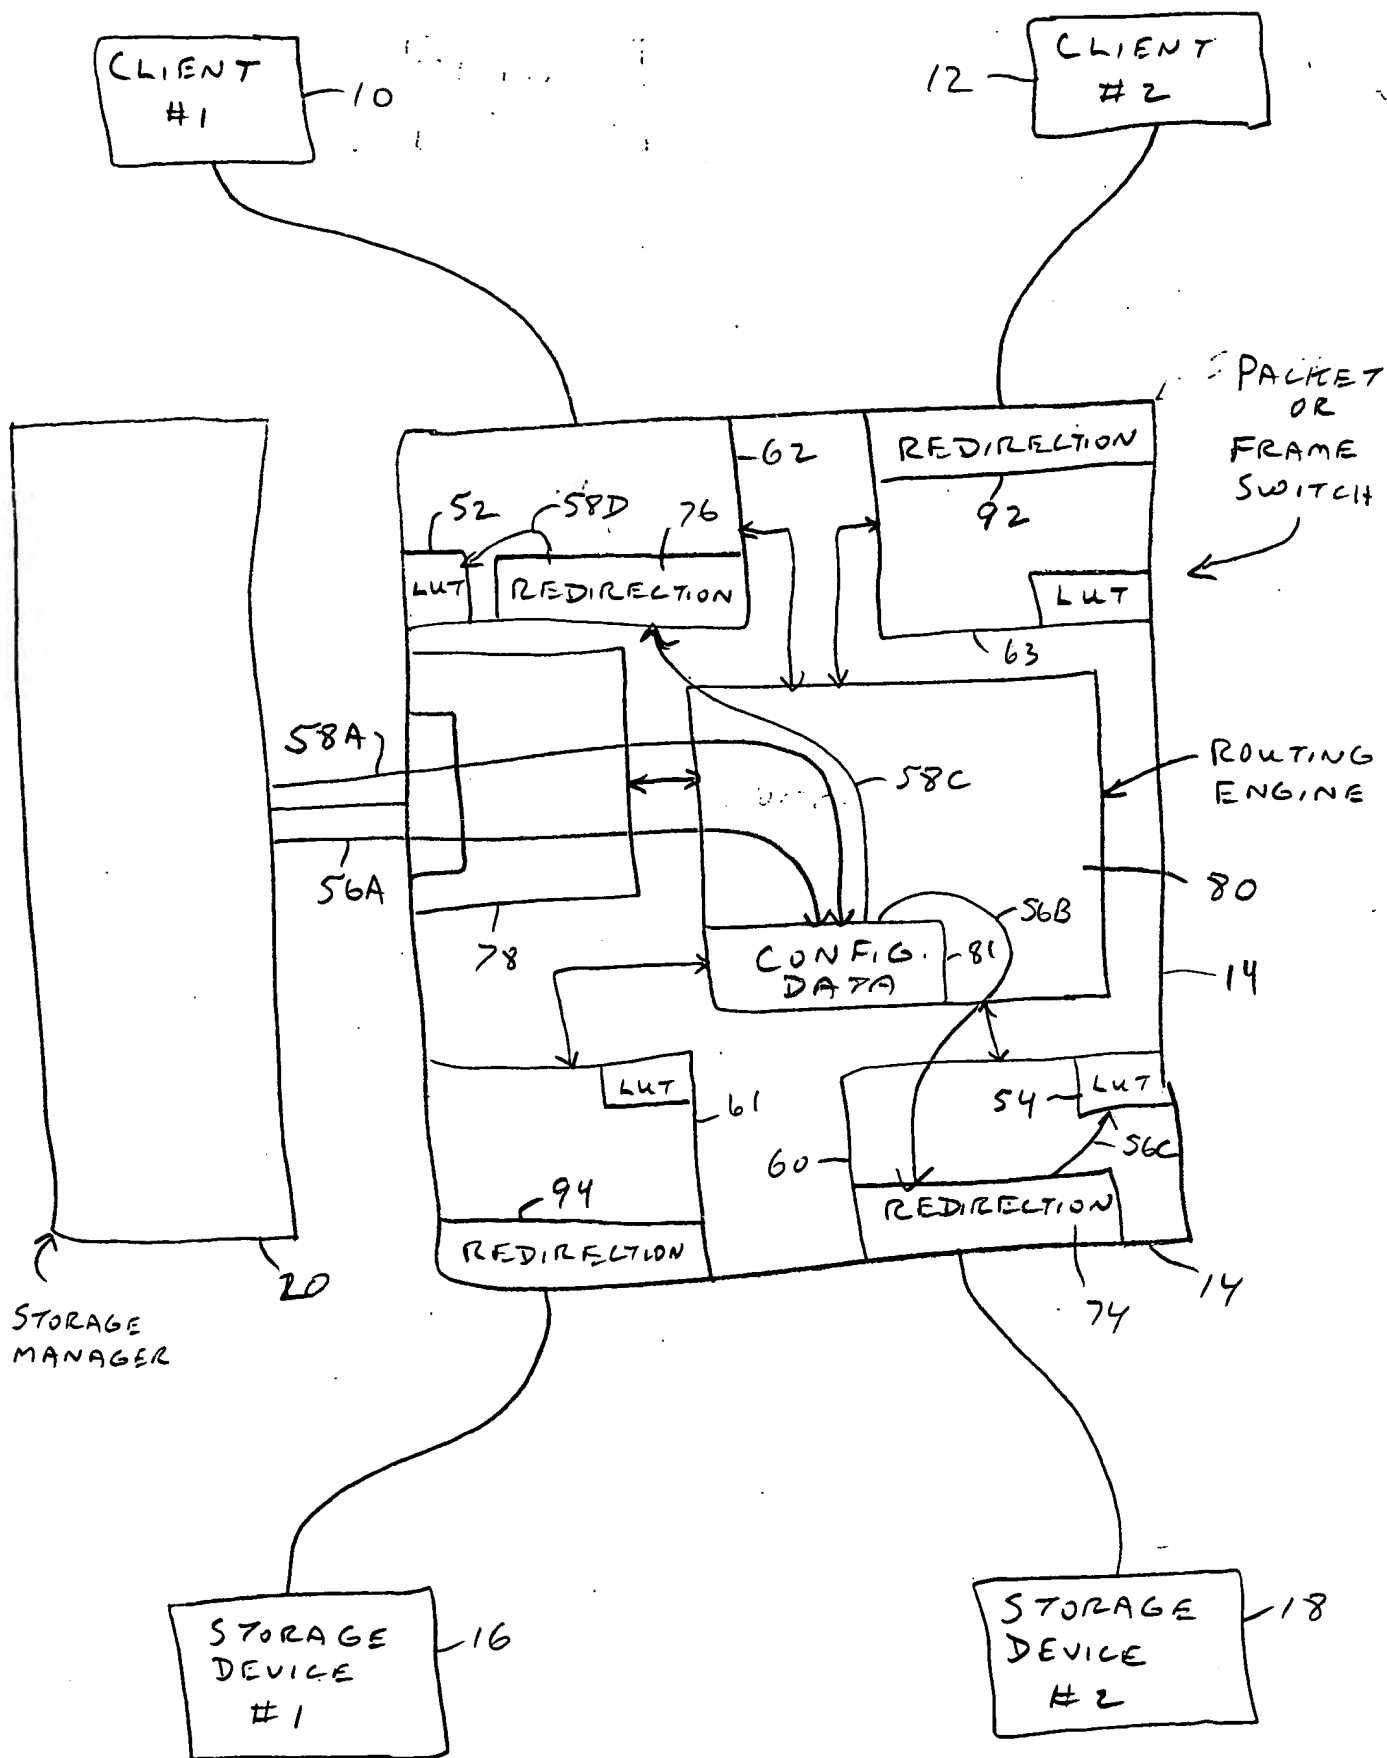 CLIENT
#1
10
CLIENT
#2
12
PACKET
OR
FRAME
SWITCH
62
REDIRECTION
92
52
58D
76
LUT
REDIRECTION
LUT
63
58A
58C
ROUTING
ENGINE
56A
80
56B
78
CONFIG.
DATA
81
14
LUT
61
54
LUT
60
56C
94
REDIRECTION
REDIRECTION
20
14
74
STORAGE
MANAGER
STORAGE
DEVICE
#1
16
STORAGE
DEVICE
#2
18